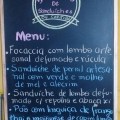 De
Sanduíches
Menu:
Focaccia com lombo arte
sanal defumado e rúcula
Sanduíche de pernil artesa
nal com verde e molho
de mel e alecrim
Sanduíche de lombo defu-
mado c/ repolho e abacaxi
Pão com linguiça de frango